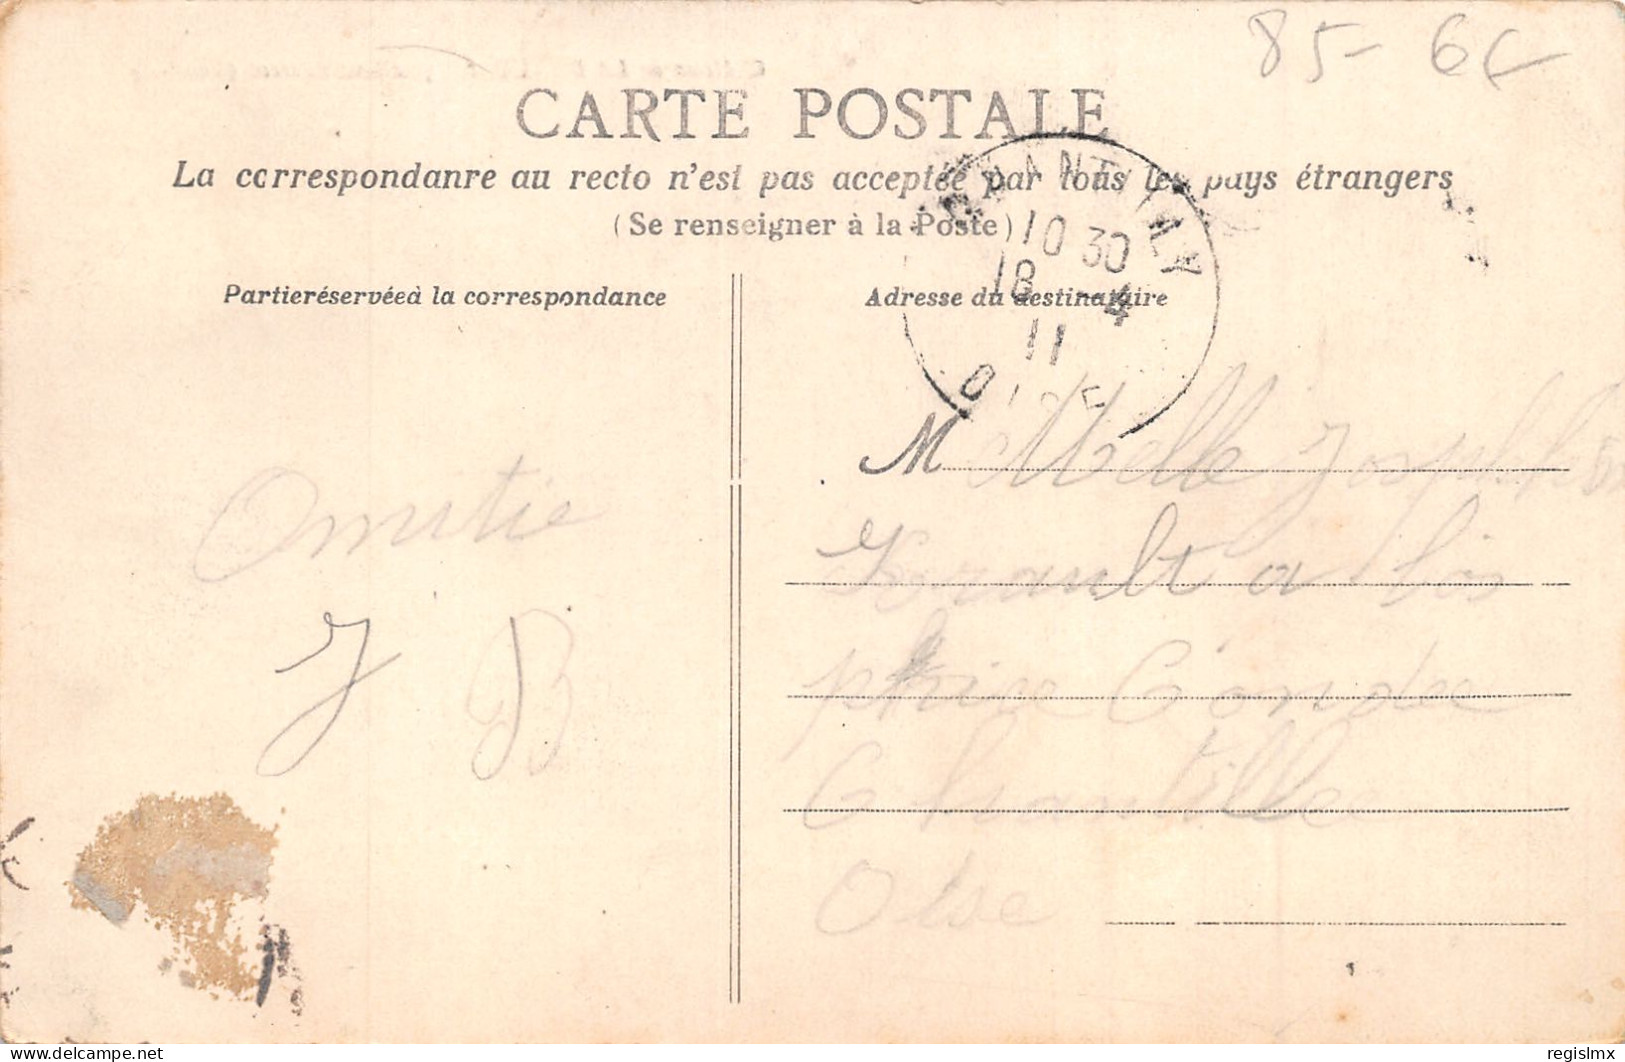 85 - 6€
CARTE POSTALE
La correspondanre au recto n'est pas acceptée par tous les pays étrangers
(Se renseigner à la Poste)
CHANTILLY
10 30
18 -4
11
OISE
Partieréservéeà la correspondance
Adresse du destinataire
M Melle Josephine
Amitie
à
J B
Conde
Chantille
Oise
delcampe.net
regislmx